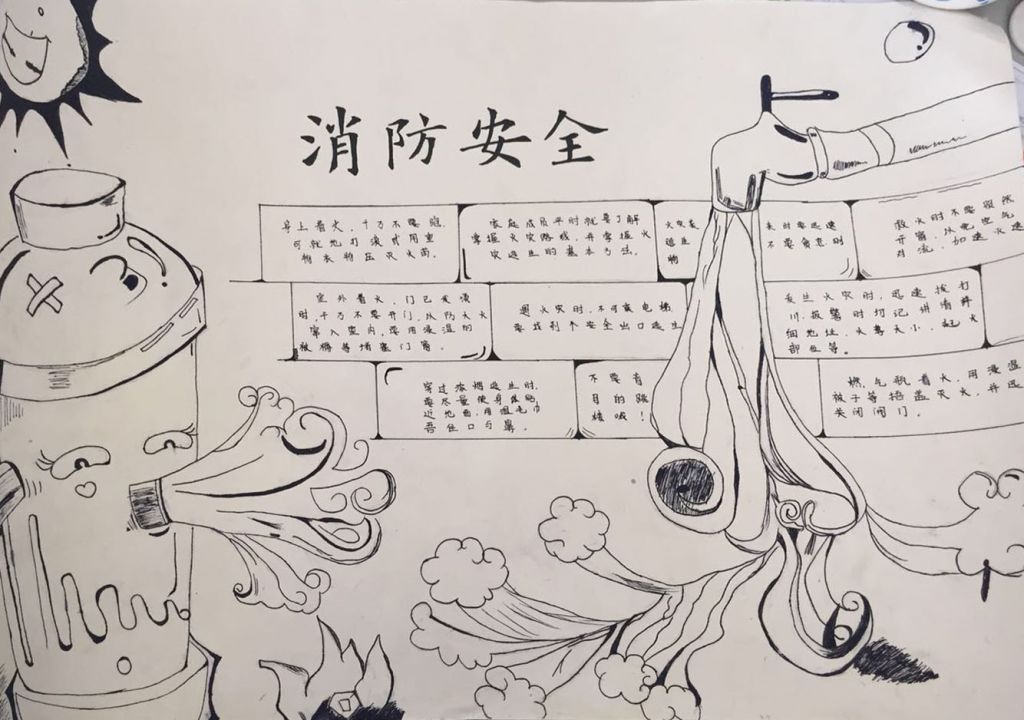 消防安全
身上着火，千万不要跑，
可就地打滚或用重
物衣物压灭火苗。
家庭成员平时就要了解
掌握火灾路线，并掌握火
灾逃生的基本方法。
火灾袭
逃生
物
来时要迅速
不要贪恋财
救火时不要贸然
开窗，以免空气
对流，加速火速
室外着火，门已发烫
时，千万不要开门，以防大火
窜入室内，要用浸湿的
被褥等堵塞门窗。
遇火灾时，不可乘电梯
要找到个安全出口逃生
发生火灾时，迅速拨打
报警时切记讲清详
细地址，火势大小，起火
部位等。
穿过浓烟逃生时，
要尽量使身体贴
近地面，用湿毛巾
捂住口与鼻。
不要盲
目的跳
楼喊！
燃气瓶着火，用浸湿
被子等捂盖灭火，并迅
关闭阀门。